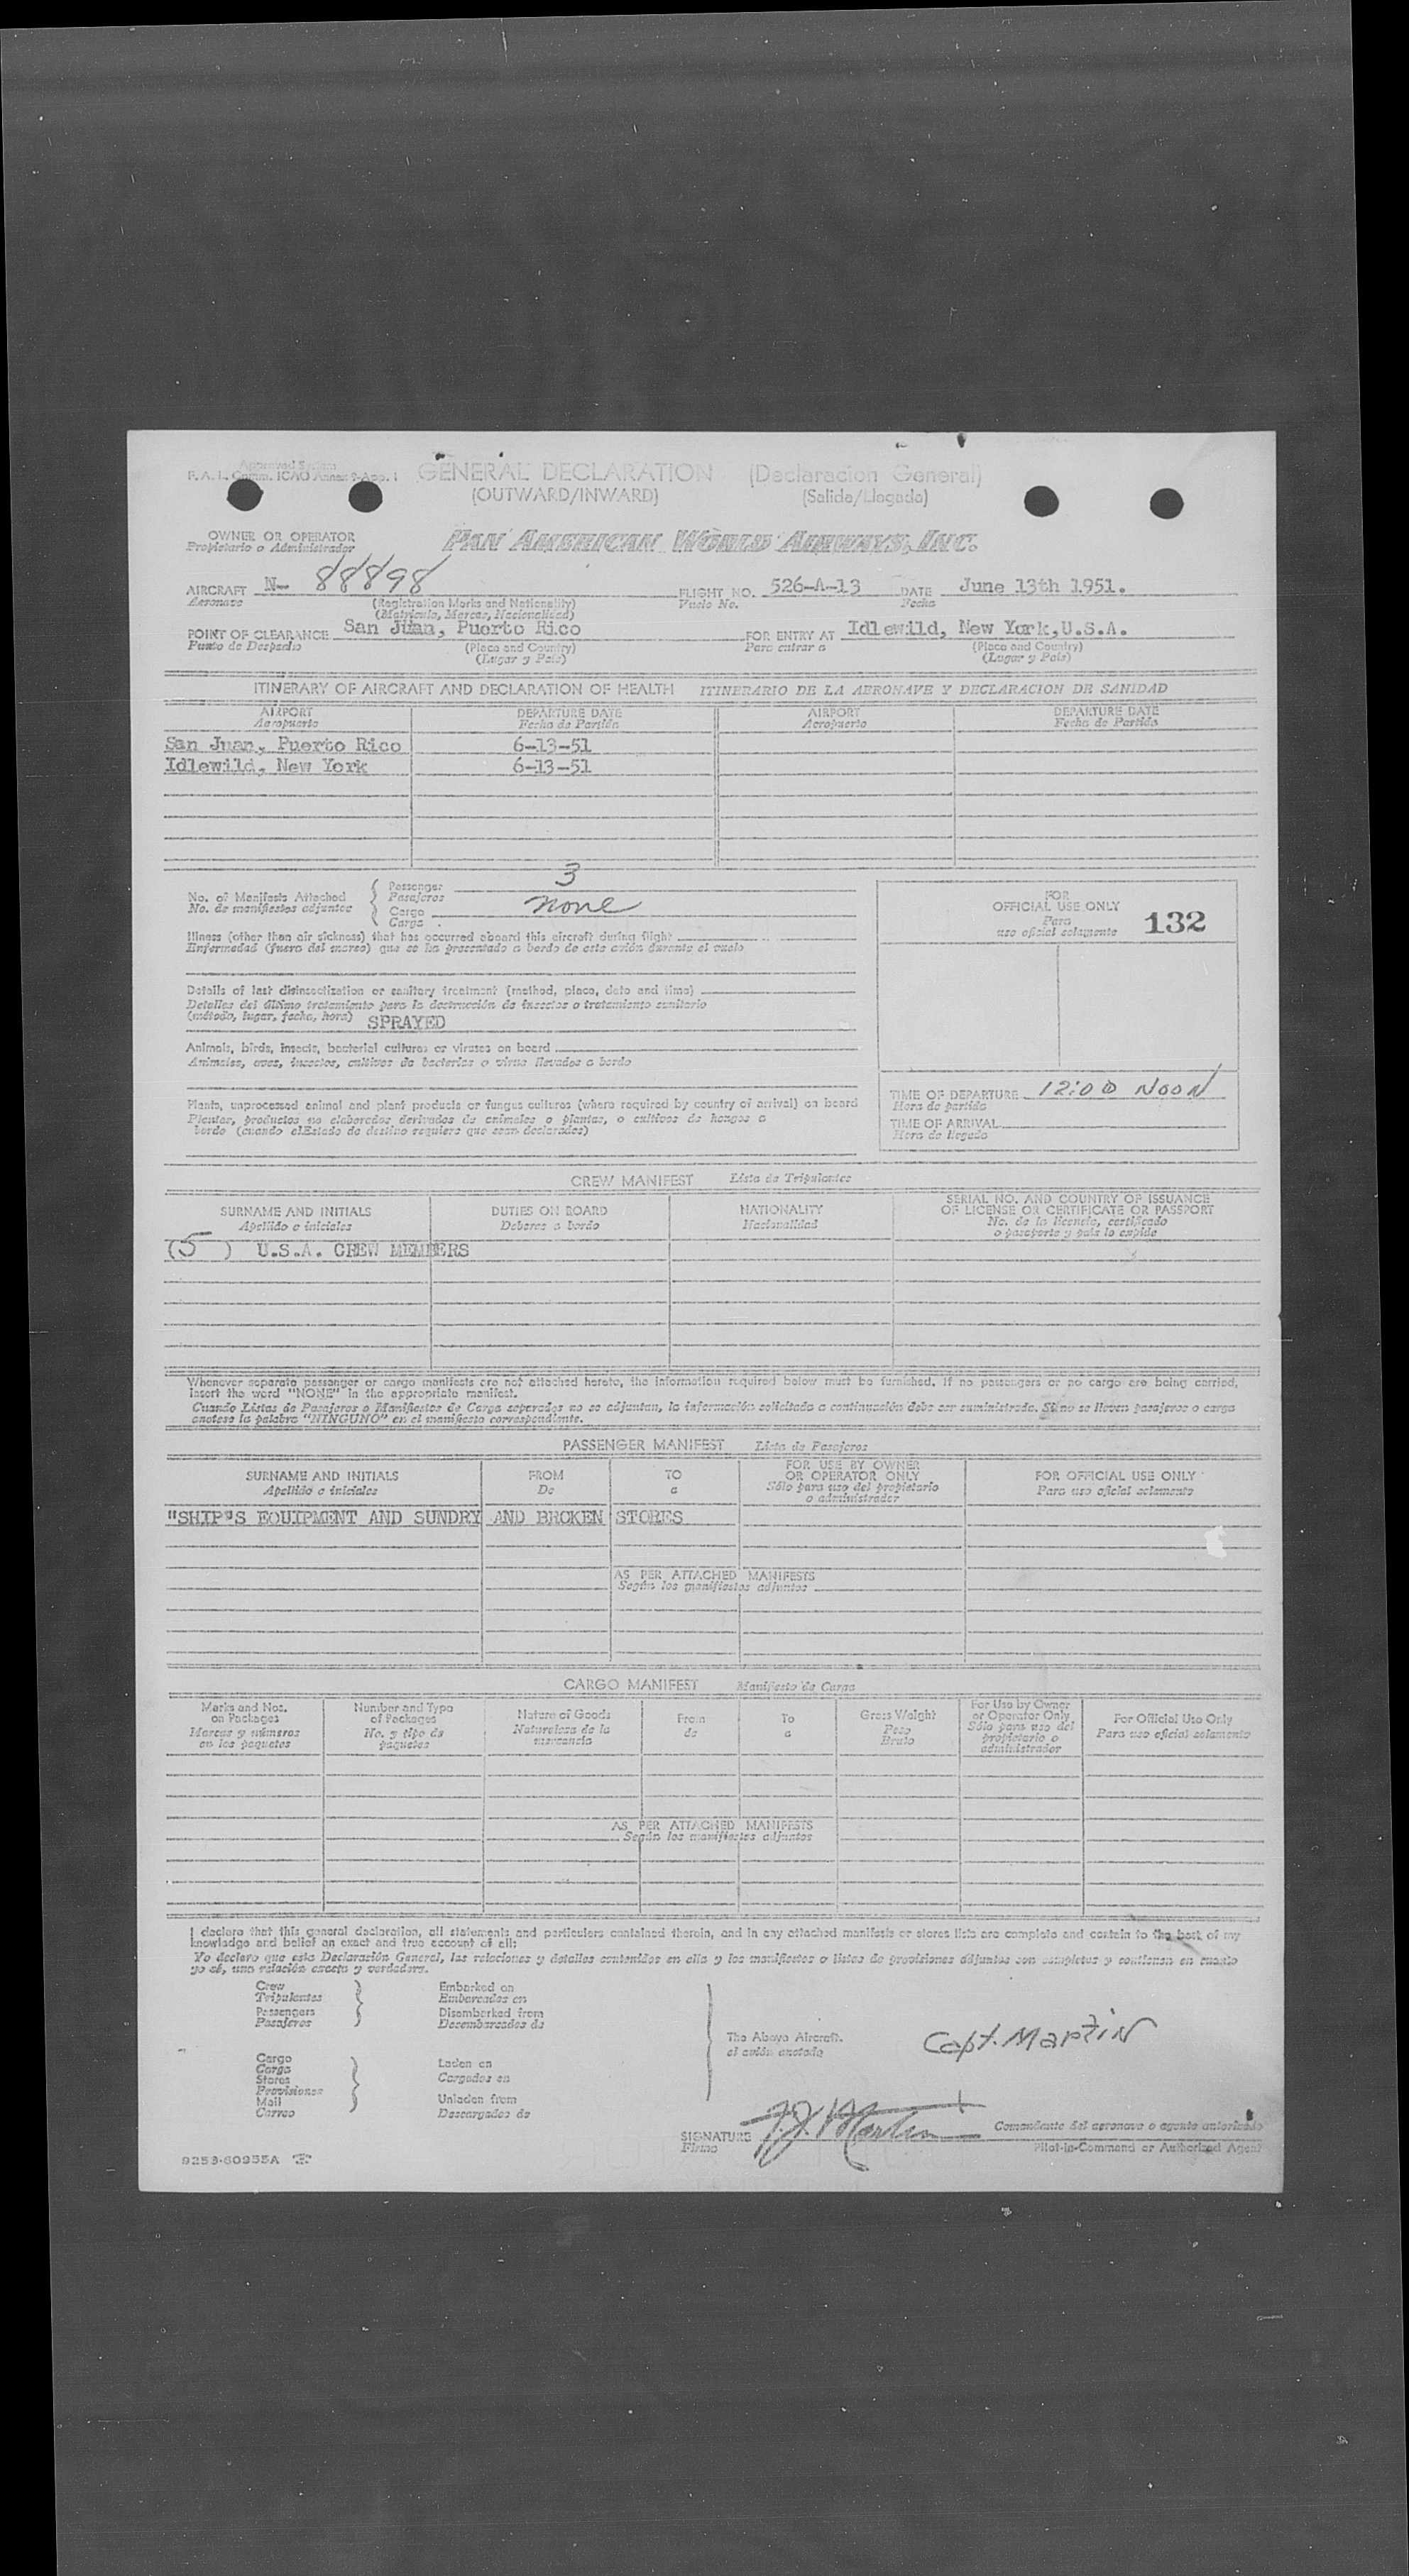 Approved System
F. A. L. Comm. ICAO Annex 9-App. 1
GENERAL DECLARATION (Declaracion General)
(OUTWARD/INWARD) (Salida/Llegada)
OWNER OR OPERATOR
Propietario o Administrador
PAN AMERICAN WORLD AIRWAYS, INC.
AIRCRAFT N- 88898 FLIGHT NO. 526-A-13 DATE June 13th 1951.
Aeronave (Registration Marks and Nationality) Vuelo No. Fecha
(Matricula, Marcas, Nacionalidad)
POINT OF CLEARANCE San Juan, Puerto Rico FOR ENTRY AT Idlewild, New York,U.S.A.
Punto de Despacho (Place and Country) Para entrar a (Place and Country)
(Lugar y Pais) (Lugar y Pais)
ITINERARY OF AIRCRAFT AND DECLARATION OF HEALTH ITINERARIO DE LA AERONAVE Y DECLARACION DE SANIDAD
AIRPORT DEPARTURE DATE AIRPORT DEPARTURE DATE
Aeropuerto Fecha de Partida Aeropuerto Fecha de Partida
San Juan, Puerto Rico 6-13-51
Idlewild, New York 6-13-51
No. of Manifests Attached
No. de manifiestos adjuntos
Passenger 3
Pasajeros
Cargo None
Carga
FOR
OFFICIAL USE ONLY
Para
uso oficial solamente
132
Illness (other than air sickness) that has occurred aboard this aircraft during flight
Enfermedad (fuera del mareo) que se ha presentado a bordo de este avión durante el vuelo
Details of last disinsectization or sanitary treatment (method, place, date and time)
Detalles del último tratamiento para la destrucción de insectos o tratamiento sanitario
(método, lugar, fecha, hora) SPRAYED
Animals, birds, insects, bacterial cultures or viruses on board
Animales, aves, insectos, cultivos de bacterias o virus llevados a bordo
Plants, unprocessed animal and plant products or fungus cultures (where required by country of arrival) on board
Plantas, productos no elaborados derivados de animales o plantas, o cultivos de hongos a
bordo (cuando elEstado de destino requiera que sean declarados)
TIME OF DEPARTURE 12:00 NOON
Hora de partida
TIME OF ARRIVAL
Hora de llegada
CREW MANIFEST Lista de Tripulantes
SURNAME AND INITIALS DUTIES ON BOARD NATIONALITY SERIAL NO. AND COUNTRY OF ISSUANCE
OF LICENSE OR CERTIFICATE OR PASSPORT
Apellido e iniciales Deberes a bordo Nacionalidad No. de la licencia, certificado
o pasaporte y pais lo expide
(5 ) U.S.A. CREW MEMBERS
Whenever separate passenger or cargo manifests are not attached hereto, the information required below must be furnished. If no passengers or no cargo are being carried,
insert the word "NONE" in the appropriate manifest.
Cuando Listas de Pasajeros o Manifiestos de Carga separados no se adjuntan, la información solicitada a continuación debe ser suministrada. Si no se llevan pasajeros o carga
anotese la palabra "NINGUNO" en el manifiesto correspondiente.
PASSENGER MANIFEST Lista de Pasajeros
SURNAME AND INITIALS FROM TO FOR USE BY OWNER
OR OPERATOR ONLY FOR OFFICIAL USE ONLY
Apellido e iniciales De a Sólo para uso del propietario
o administrador Para uso oficial solamente
"SHIP"S EQUIPMENT AND SUNDRY AND BROKEN STORES
AS PER ATTACHED MANIFESTS
Según los manifiestos adjuntos
CARGO MANIFEST Manifiesto de Carga
Marks and Nos.
on Packages
Marcas y números
en los paquetes
Number and Type
of Packages
No. y tipo de
paquetes
Nature of Goods
Naturaleza de la
mercancia
From
de
To
a
Gross Weight
Peso
Bruto
For Use by Owner
or Operator Only
Sólo para uso del
propietario o
administrador
For Official Use Only
Para uso oficial solamente
AS PER ATTACHED MANIFESTS
Según los manifiestos adjuntos
I declare that this general declaration, all statements and particulars contained therein, and in any attached manifests or stores lists are complete and contain to the best of my
knowledge and belief an exact and true account of all:
Yo declaro que esta Declaración General, las relaciones y detalles contenidos en ella y los manifiestos o listas de provisiones adjuntos son completos y contienen en cuanto
yo sé, una relación exacta y verdadera.
Crew
Tripulantes
Passengers
Pasajeros
Embarked on
Embarcados en
Disembarked from
Desembarcados de
Cargo
Carga
Stores
Provisiones
Mail
Correo
Laden on
Cargados en
Unladen from
Descargados de
The Above Aircraft.
el avión anotado
Capt. Martin
SIGNATURE F.J. Martin
Firma
Comandante del aeronave o agente autorizado
Pilot-in-Command or Authorized Agent
9253-60955A